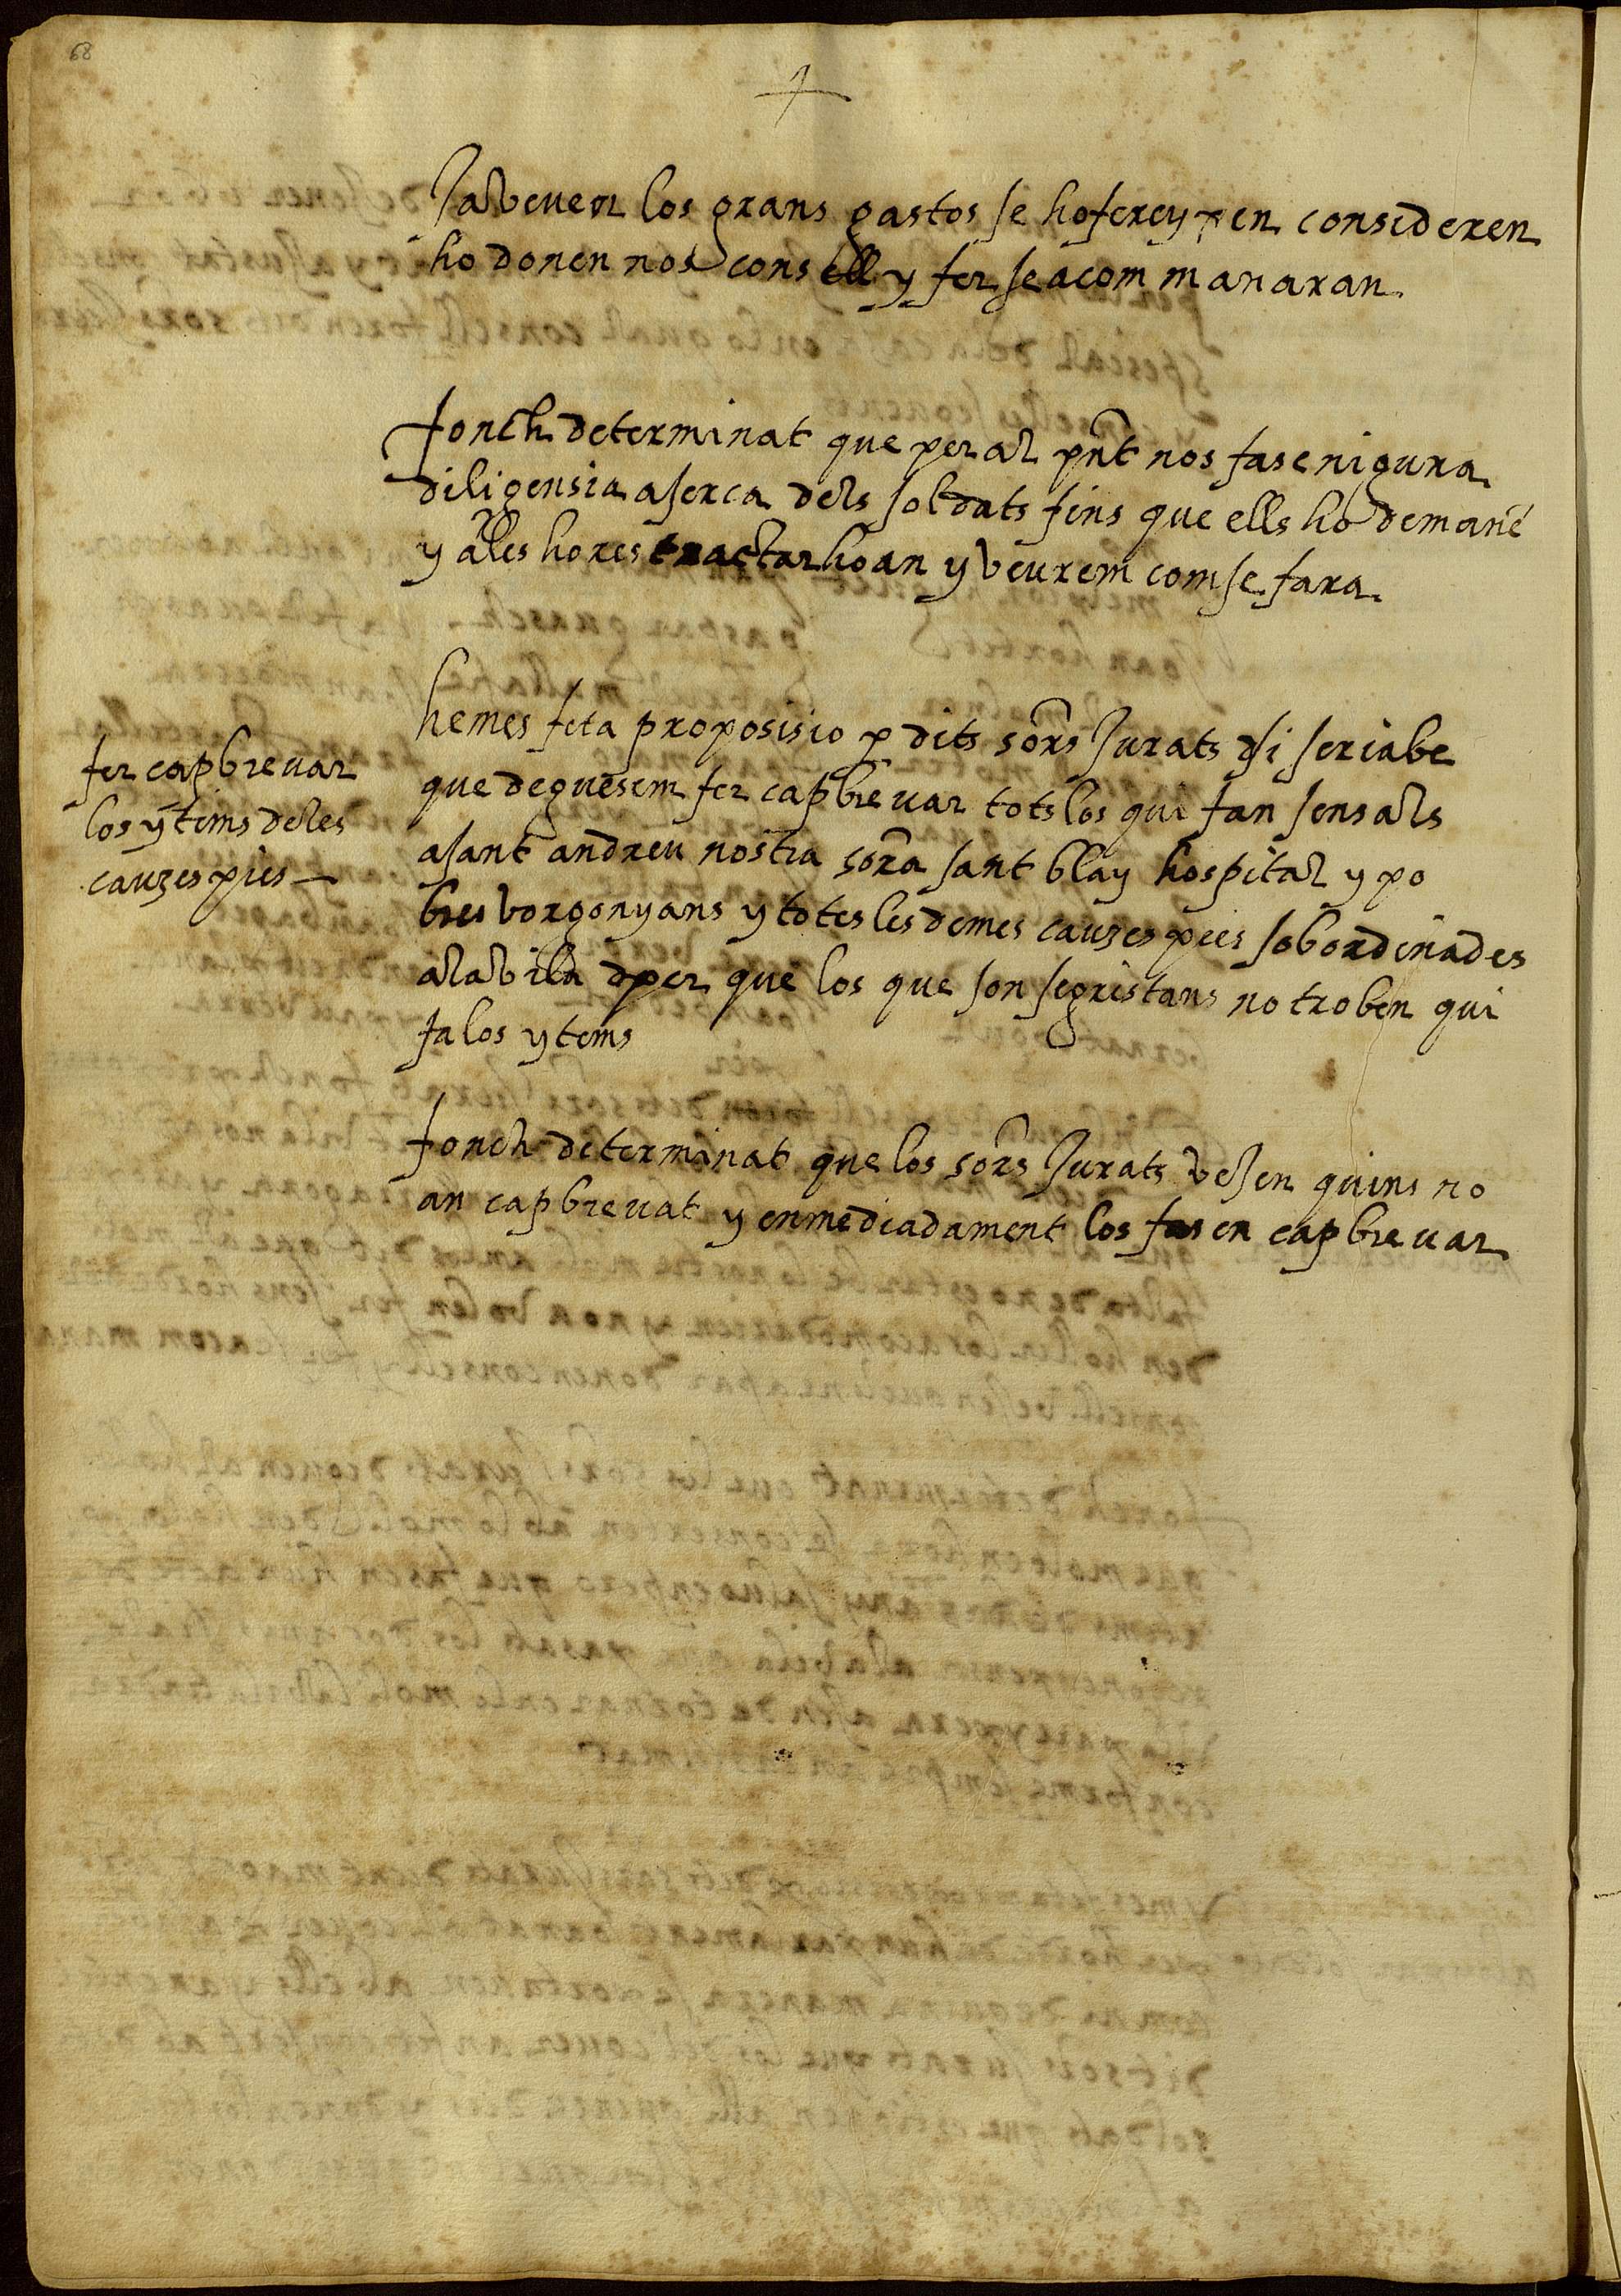 68
Ja veuen los grans gastos se hofereyxen consideren
ho donen nos consell y fer se a com manaran
fonch determinat que per al pñt nos fase niguna
diligensia aserca dels soldats fins que ells ho demanē
y a les hores tractar ho an y veurem com se fara
hemes feta proposisio p dits sors Jurats si seria be
que deguesem fer capbrevar tots los qui fan sensals
a sant andreu nostra sora sant blay hospital y po
bres borgonyans y totes les demes causes pies sobordinades
a la vila per que los que son segristans no troben qui
fa los ytems
fer capbrevar
los ytems de les
causes pies
fonch determinat que los sors Jurats vesen quins no
an capbrevat y enmediadament los fasen capbrevar